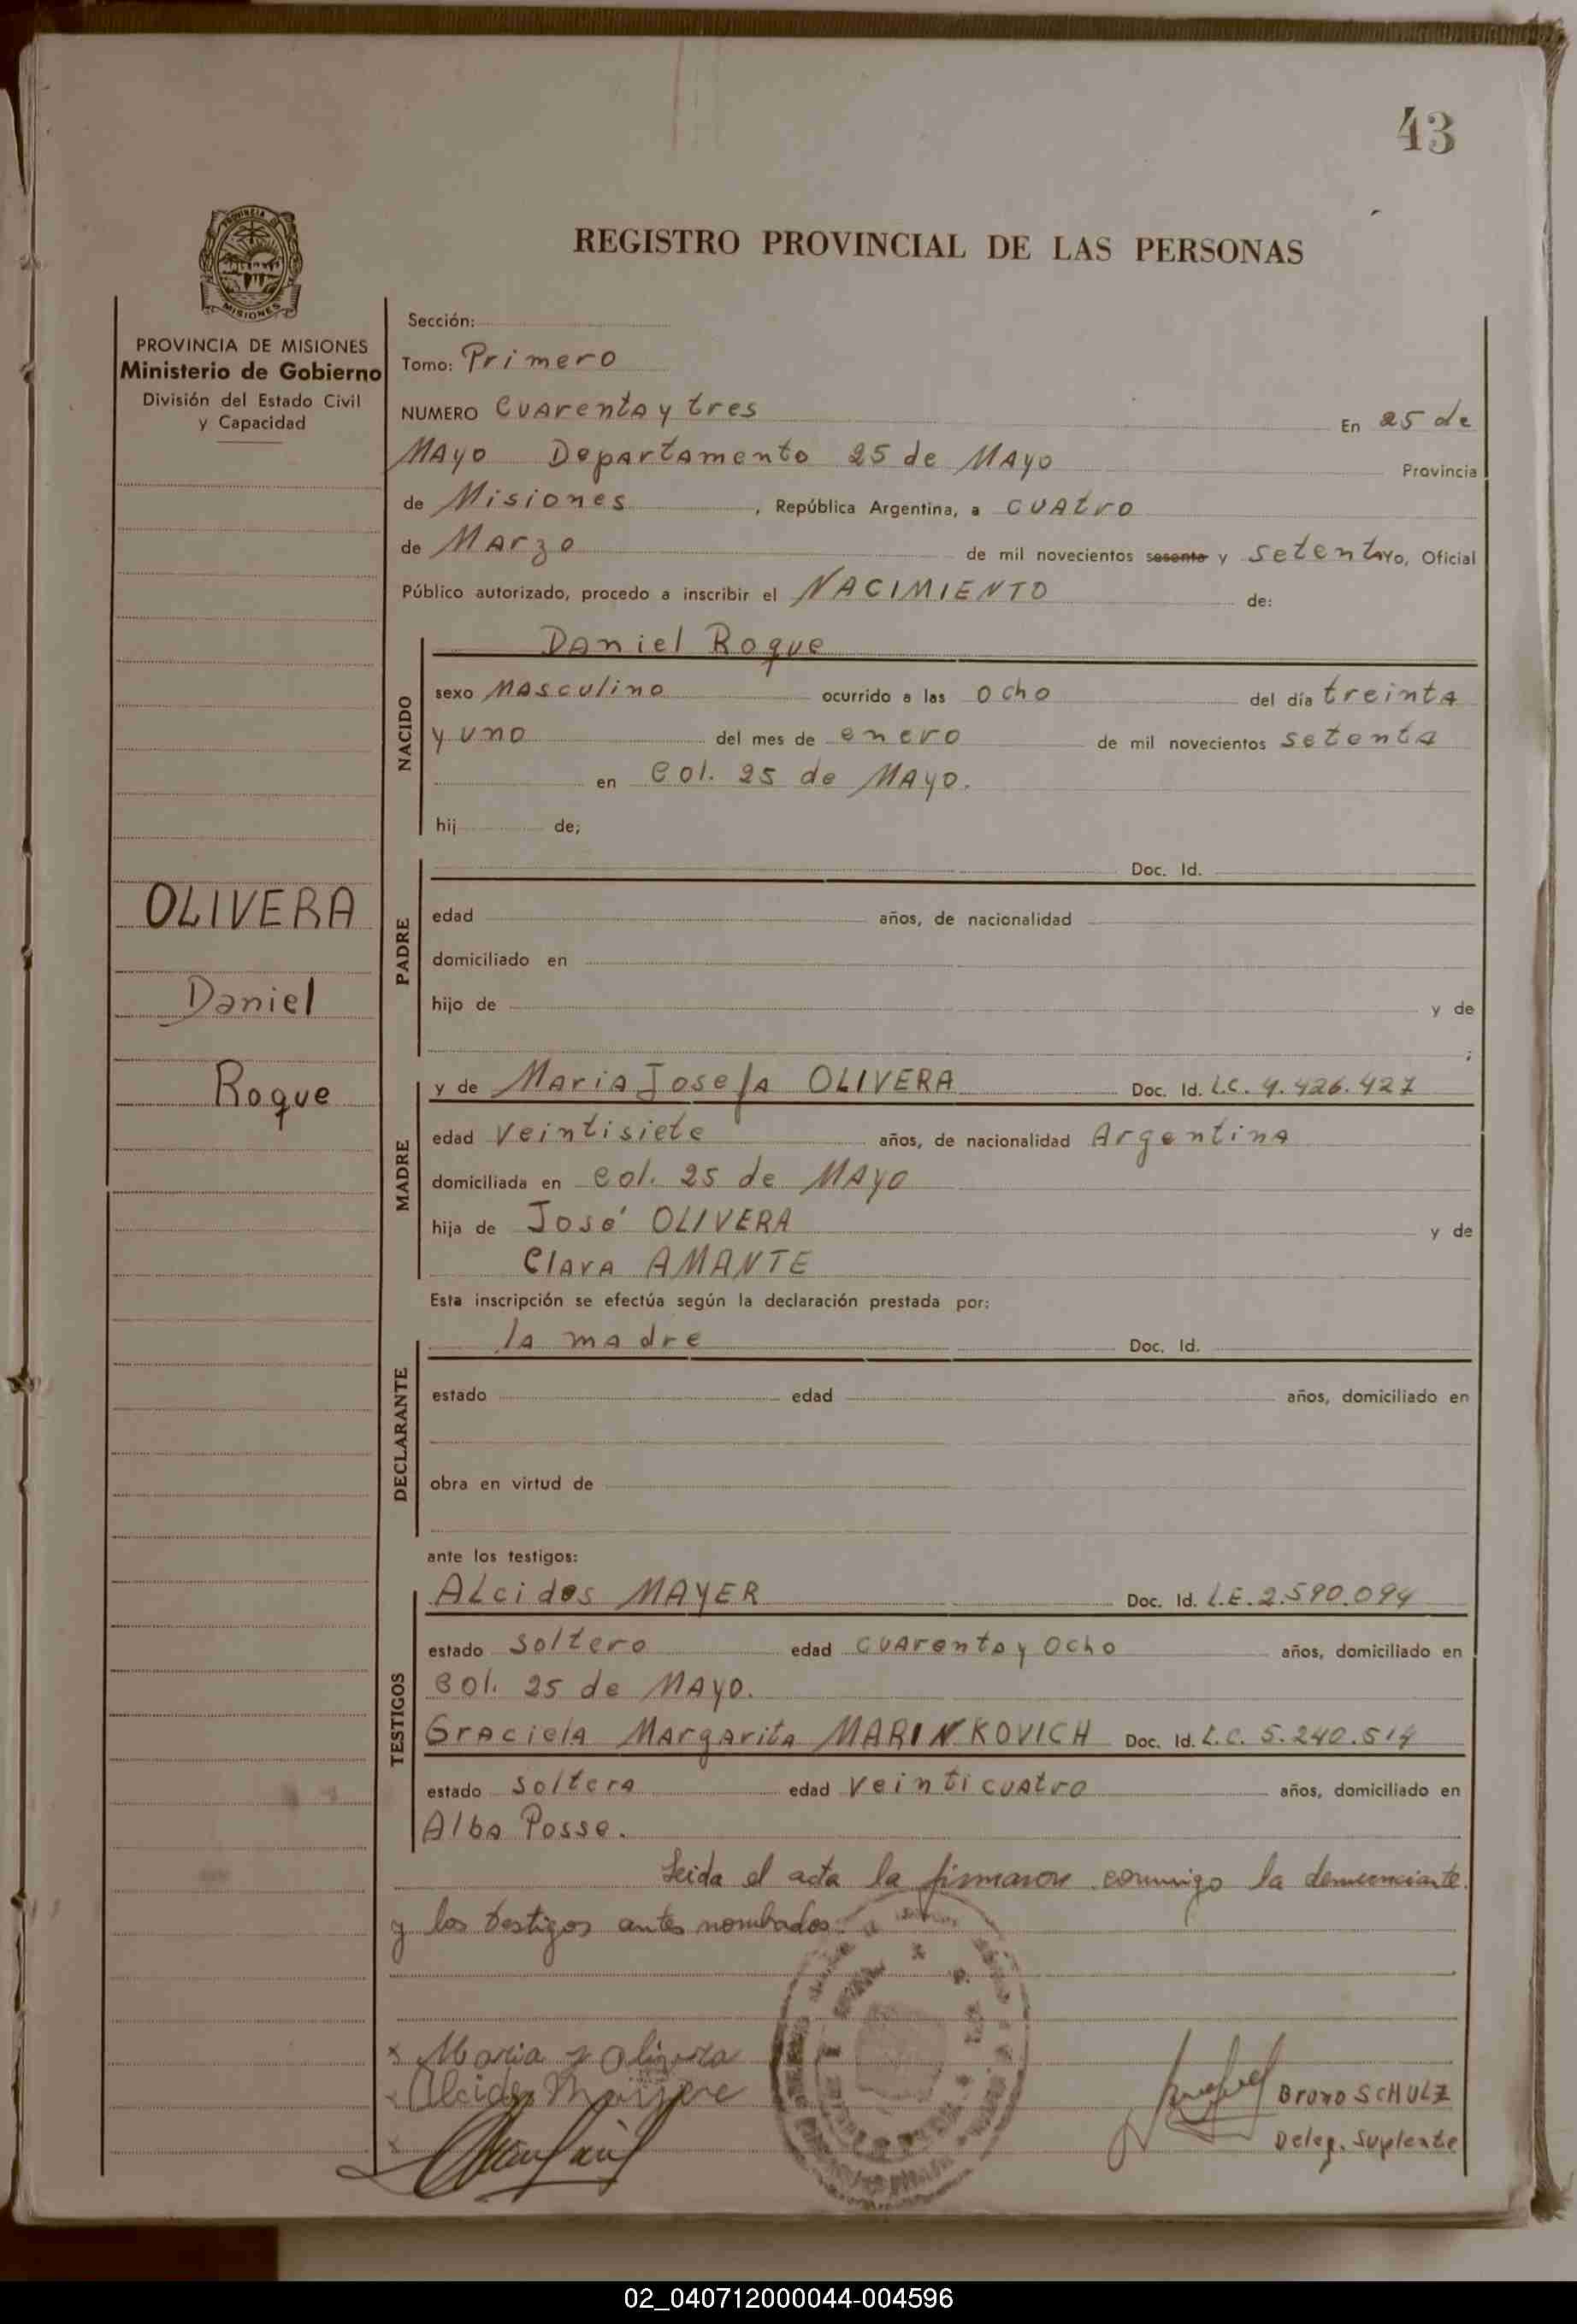 43
PROVINCIA DE
MISIONES
REGISTRO PROVINCIAL DE LAS PERSONAS
PROVINCIA DE MISIONES
Ministerio de Gobierno
División del Estado Civil
y Capacidad
OLIVERA
Daniel
Roque
Sección:
Tomo: Primero
NUMERO Cuarenta y tres En 25 de
Mayo Departamento 25 de Mayo Provincia
de Misiones, República Argentina, a cuatro
de Marzo de mil novecientos sesenta y setenta yo, Oficial
Público autorizado, procedo a inscribir el NACIMIENTO de:
NACIDO
Daniel Roque
sexo Masculino ocurrido a las ocho del día treinta
y uno del mes de enero de mil novecientos setenta
en Col. 25 de Mayo.
hij de;
PADRE
Doc. Id.
edad años, de nacionalidad
domiciliado en
hijo de y de
;
MADRE
y de Maria Josefa OLIVERA Doc. Id. L.C. 4.426.427
edad veintisiete años, de nacionalidad Argentina
domiciliada en Col. 25 de Mayo
hija de José OLIVERA y de
Clara AMANTE
Esta inscripción se efectúa según la declaración prestada por:
DECLARANTE
la madre Doc. Id.
estado edad años, domiciliado en
obra en virtud de
ante los testigos:
TESTIGOS
Alcides MAYER Doc. Id. L.E. 2.590.094
estado soltero edad cuarenta y ocho años, domiciliado en
Col. 25 de Mayo.
Graciela Margarita MARINKOVICH Doc. Id. L.C. 5.240.514
estado soltera edad veinticuatro años, domiciliado en
Alba Posse.
Leida el acta la firmaron conmigo la denunciante
y los testigos antes nombados.
x Maria J Olivera
x Alcides
x
Bruno SCHULZ
Deleg. Suplente
02_040712000044-004596